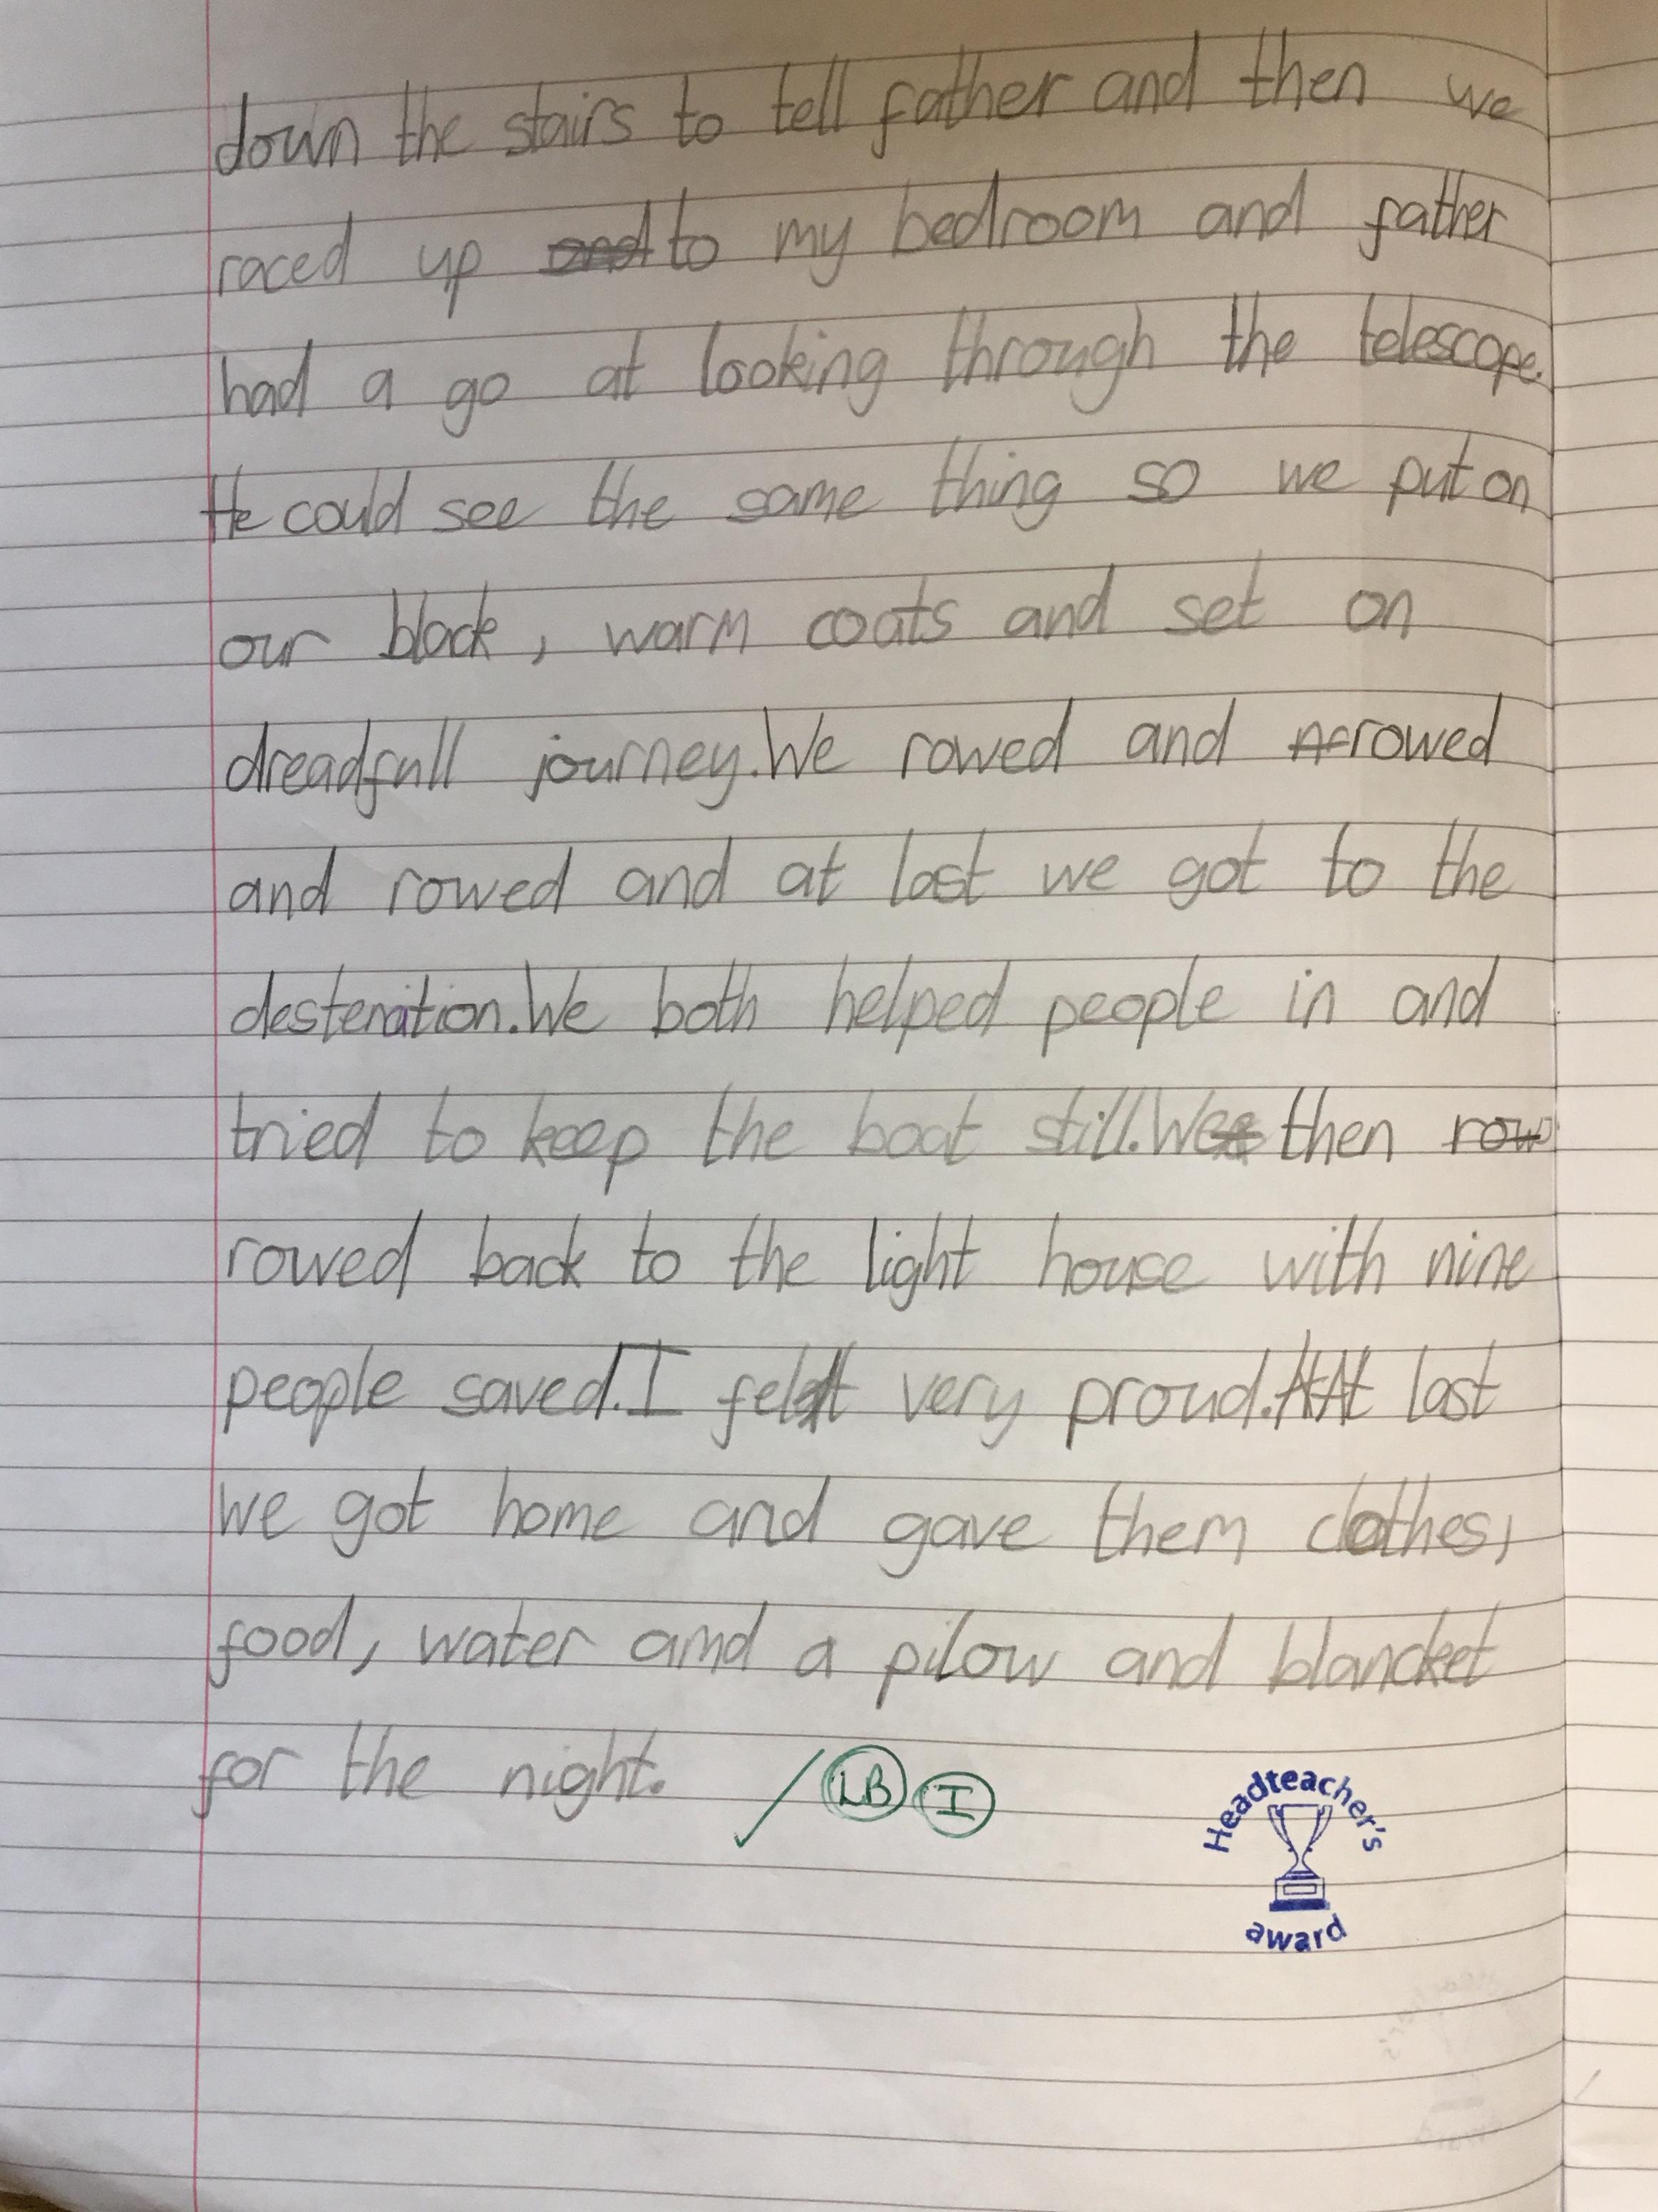 down the stairs to tell father and then we
raced up and to my bedroom and father
had a go at looking through the telescope.
He could see the same thing so we put on
our black, warm coats and set on
dreadfull journey. We rowed and rowed
and rowed and at last we got to the
destenation. We both helped people in and
tried to keep the boat still. We then row
rowed back to the light house with nine
people saved. I felt very proud. At At last
we got home and gave them clothes,
food, water amd a pilow and blancket
for the night.
LB I
Headteacher's
award